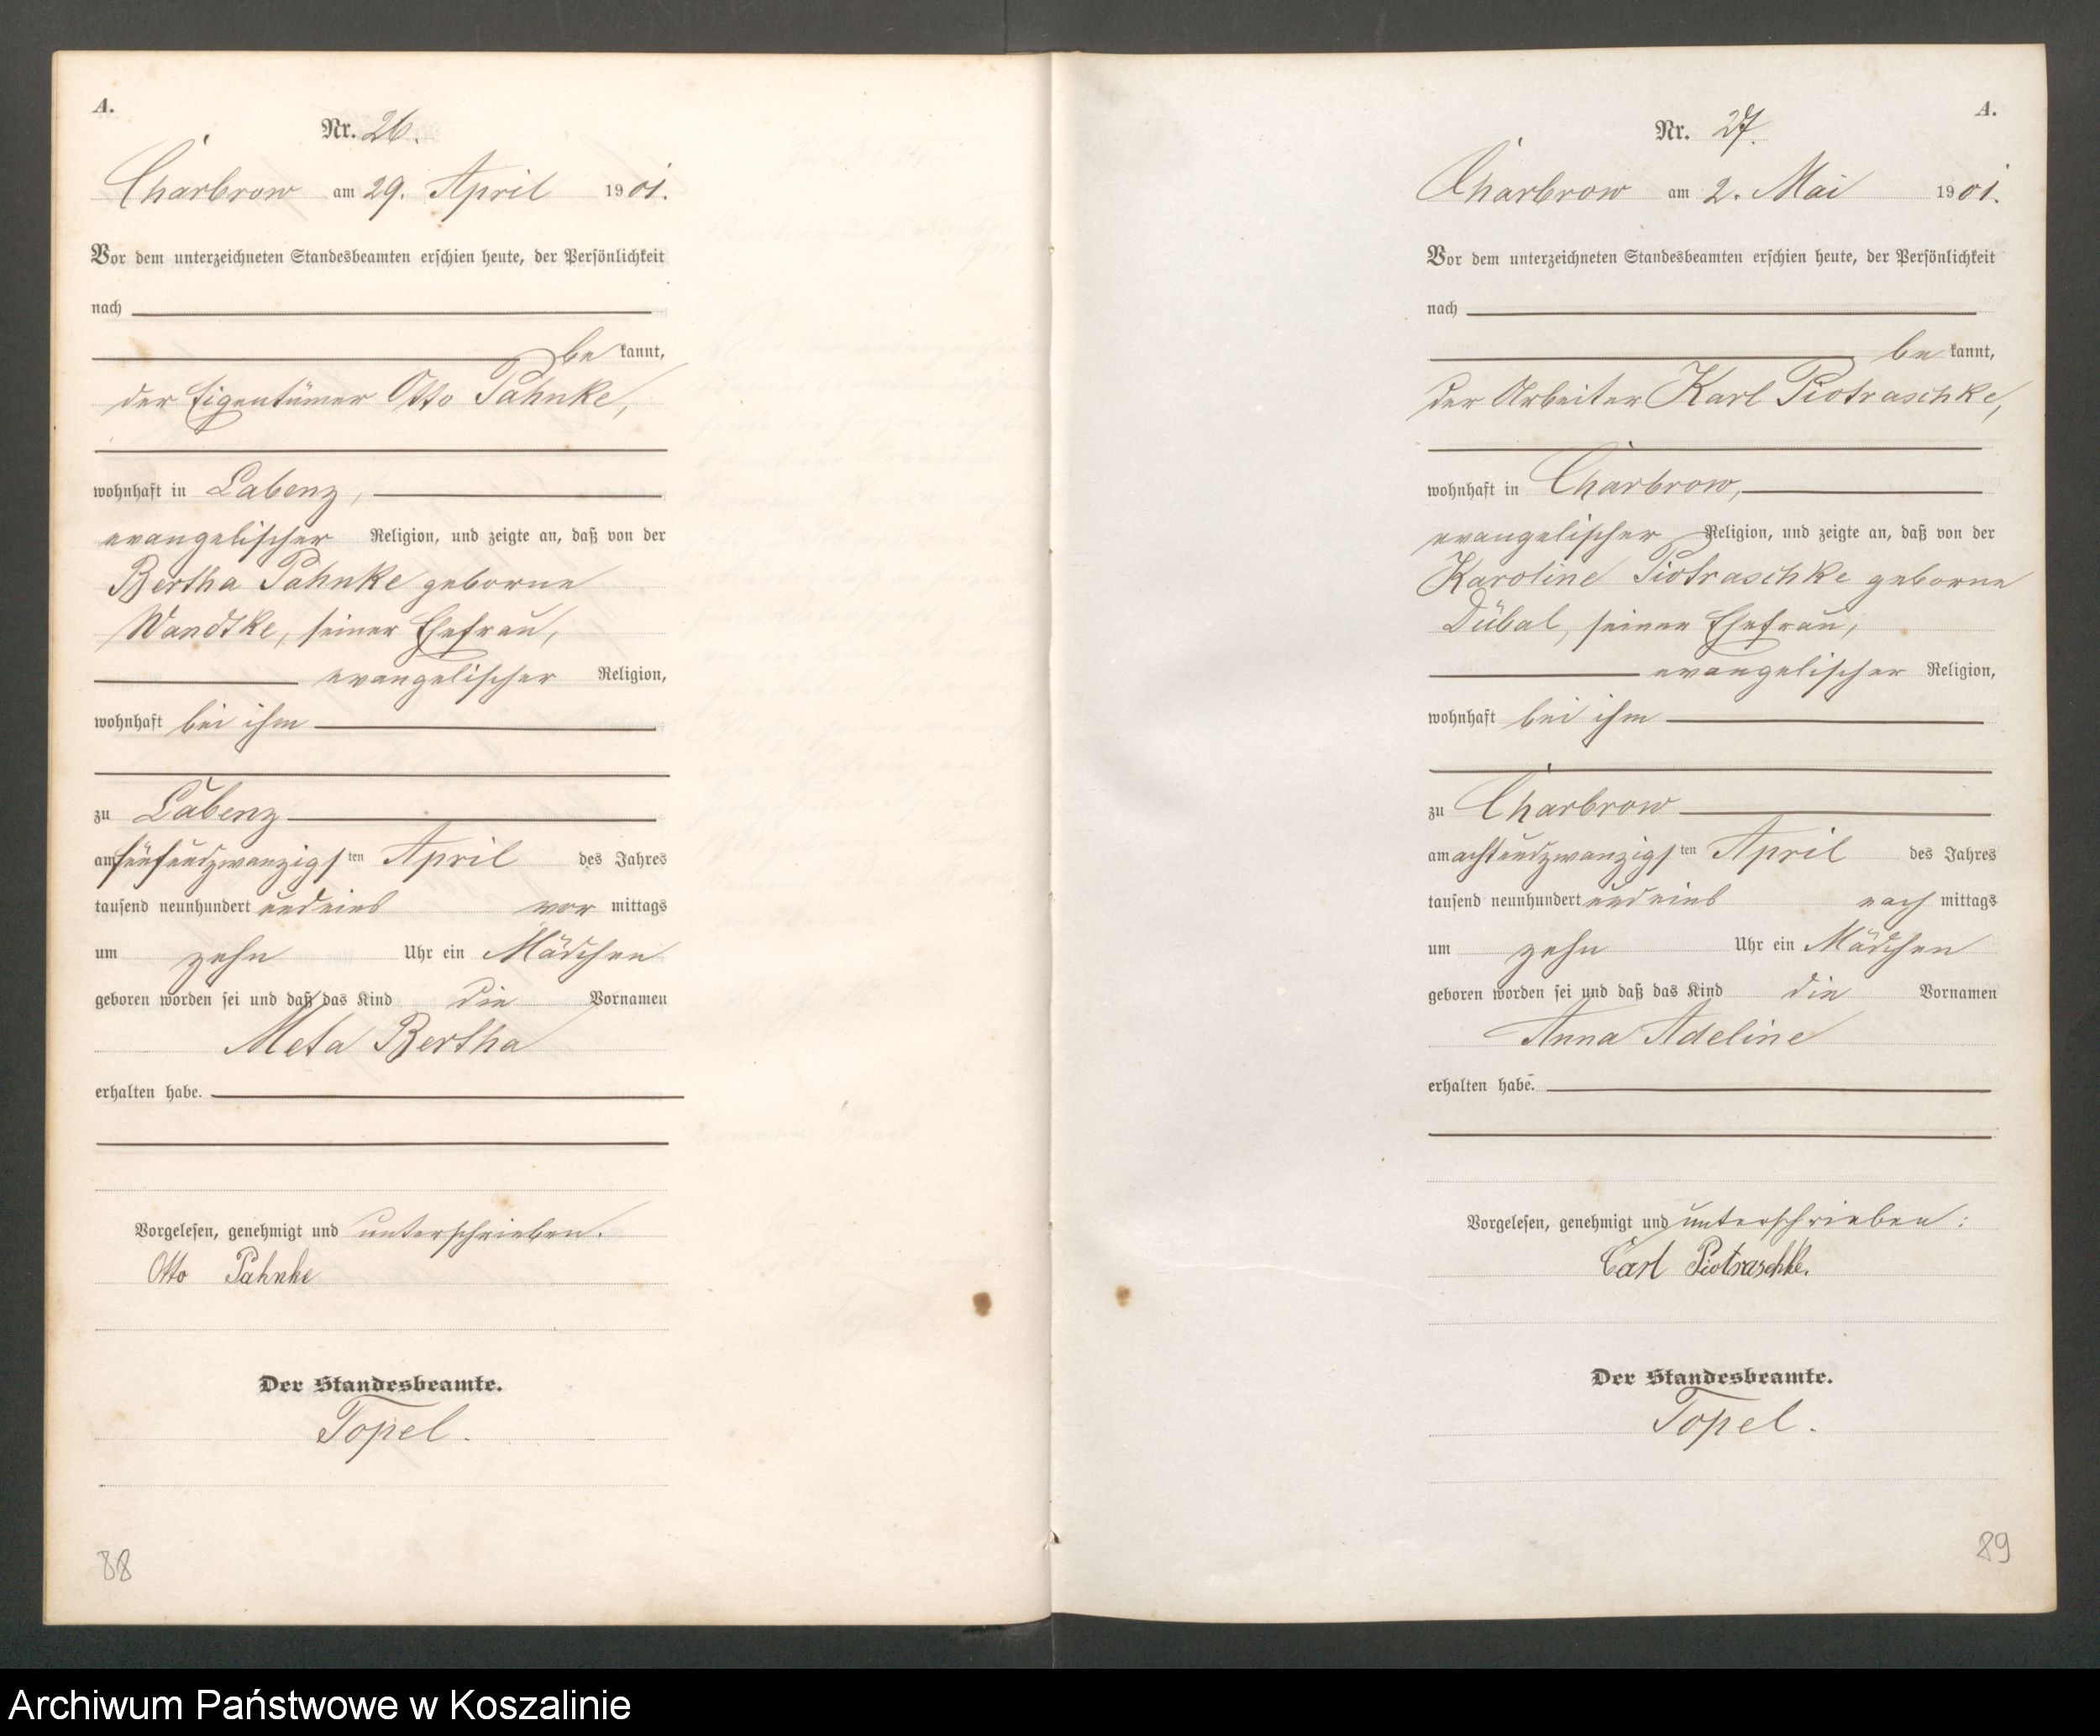 A.
Nr. 26.
Charbrow am 29. April 1901.
Vor dem unterzeichneten Standesbeamten erschien heute, der Persönlichkeit
nach
be kannt,
der Eigentümer Otto Pahnke,
wohnhaft in Labenz,
evangelischer Religion, und zeigte an, daß von der
Bertha Pahnke geborne
Wandtke, seiner Ehefrau,
evangelischer Religion,
wohnhaft bei ihm
zu Labenz
am fünfundzwanzigsten April des Jahres
tausend neunhundert undeins vor mittags
um zehn Uhr ein Mädchen
geboren worden sei und daß das Kind die Vornamen
Meta Bertha
erhalten habe.
Vorgelesen, genehmigt und unterschrieben.
Otto Pahnke
Der Standesbeamte.
Topel.
88
A.
Nr. 27.
Charbrow am 2. Mai 1901.
Vor dem unterzeichneten Standesbeamten erschien heute, der Persönlichkeit
nach
be kannt,
der Arbeiter Karl Piotraschke,
wohnhaft in Charbrow,
evangelischer Religion, und zeigte an, daß von der
Karoline Piotraschke geborne
Dübal, seiner Ehefrau,
evangelischer Religion,
wohnhaft bei ihm
zu Charbrow
am achtundzwanzigsten April des Jahres
tausend neunhundert undeins nach mittags
um zehn Uhr ein Mädchen
geboren worden sei und daß das Kind die Vornamen
Anna Adeline
erhalten habe.
Vorgelesen, genehmigt und unterschrieben:
Carl Piotraschke.
Der Standesbeamte.
Topel.
89
Archiwum Państwowe w Koszalinie